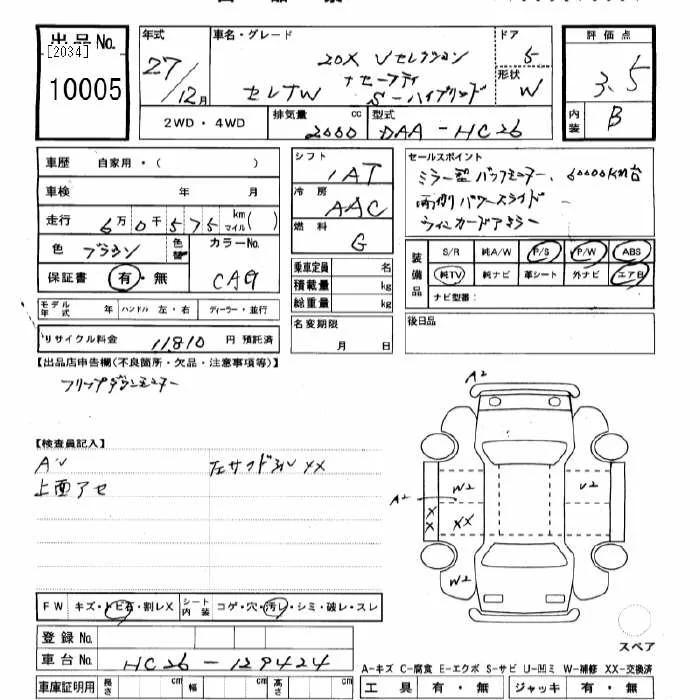 出品No.
[2034]
10005
年式
27/12月
車名・グレード
20X Vセレクション
+セーフティ
セレナW S-ハイブリッド
ドア
5
形状
W
評価点
3.5
内装
B
2WD・4WD
排気量
2000 cc
型式
DAA-HC26
車歴 自家用・( )
車検 年 月
走行 6万0千575 km マイル( )
色 ブラウン 色替
カラーNo.
CAQ
保証書 有・無
モデル年式 年 ハンドル 左・右 ディーラー・並行
リサイクル料金 11,810 円 預託済
シフト
IAT
冷房
AAC
燃料
G
乗車定員 名
積載量 kg
総重量 kg
名変期限
月 日
セールスポイント
ミラー型バックモニター、60000km台
両側パワースライド
ウィンカードアミラー
装備品
S/R 純A/W P/S P/W ABS
純TV 純ナビ 革シート 外ナビ エアB
ナビ型番:
後日品
【出品店申告欄(不良箇所・欠品・注意事項等)】
フリップダウンモニター
【検査員記入】
AU 左サイドシル XX
上面アセ
A2
A2
W2
U2
XX
XX
W2
FW キズ・トビ石・割レX
シート内装 コゲ・穴・汚レ・シミ・破レ・スレ
登録No.
車台No. HC26-129424
車庫証明用 長さ cm 幅 cm 高さ cm
スペア
A-キズ C-腐食 E-エクボ S-サビ U-凹ミ W-補修 XX-交換済
工具 有・無 ジャッキ 有・無